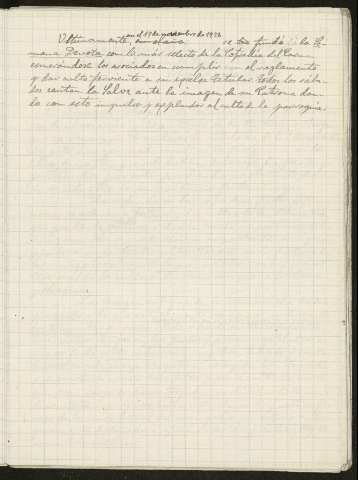 en el 19 de noviembre de 1922
Ultimamente, se fundó la Se-
mana Devota con lo más selecto de la Capilla del Carmen
esmerándose los asociados en cumplir el reglamento
y dar culto ferviente a su excelsa Titular. Todos los sába-
dos cantan la Salve ante la imagen de su Patrona dan-
do con esto impulso y esplendor al culto de la parroquia.